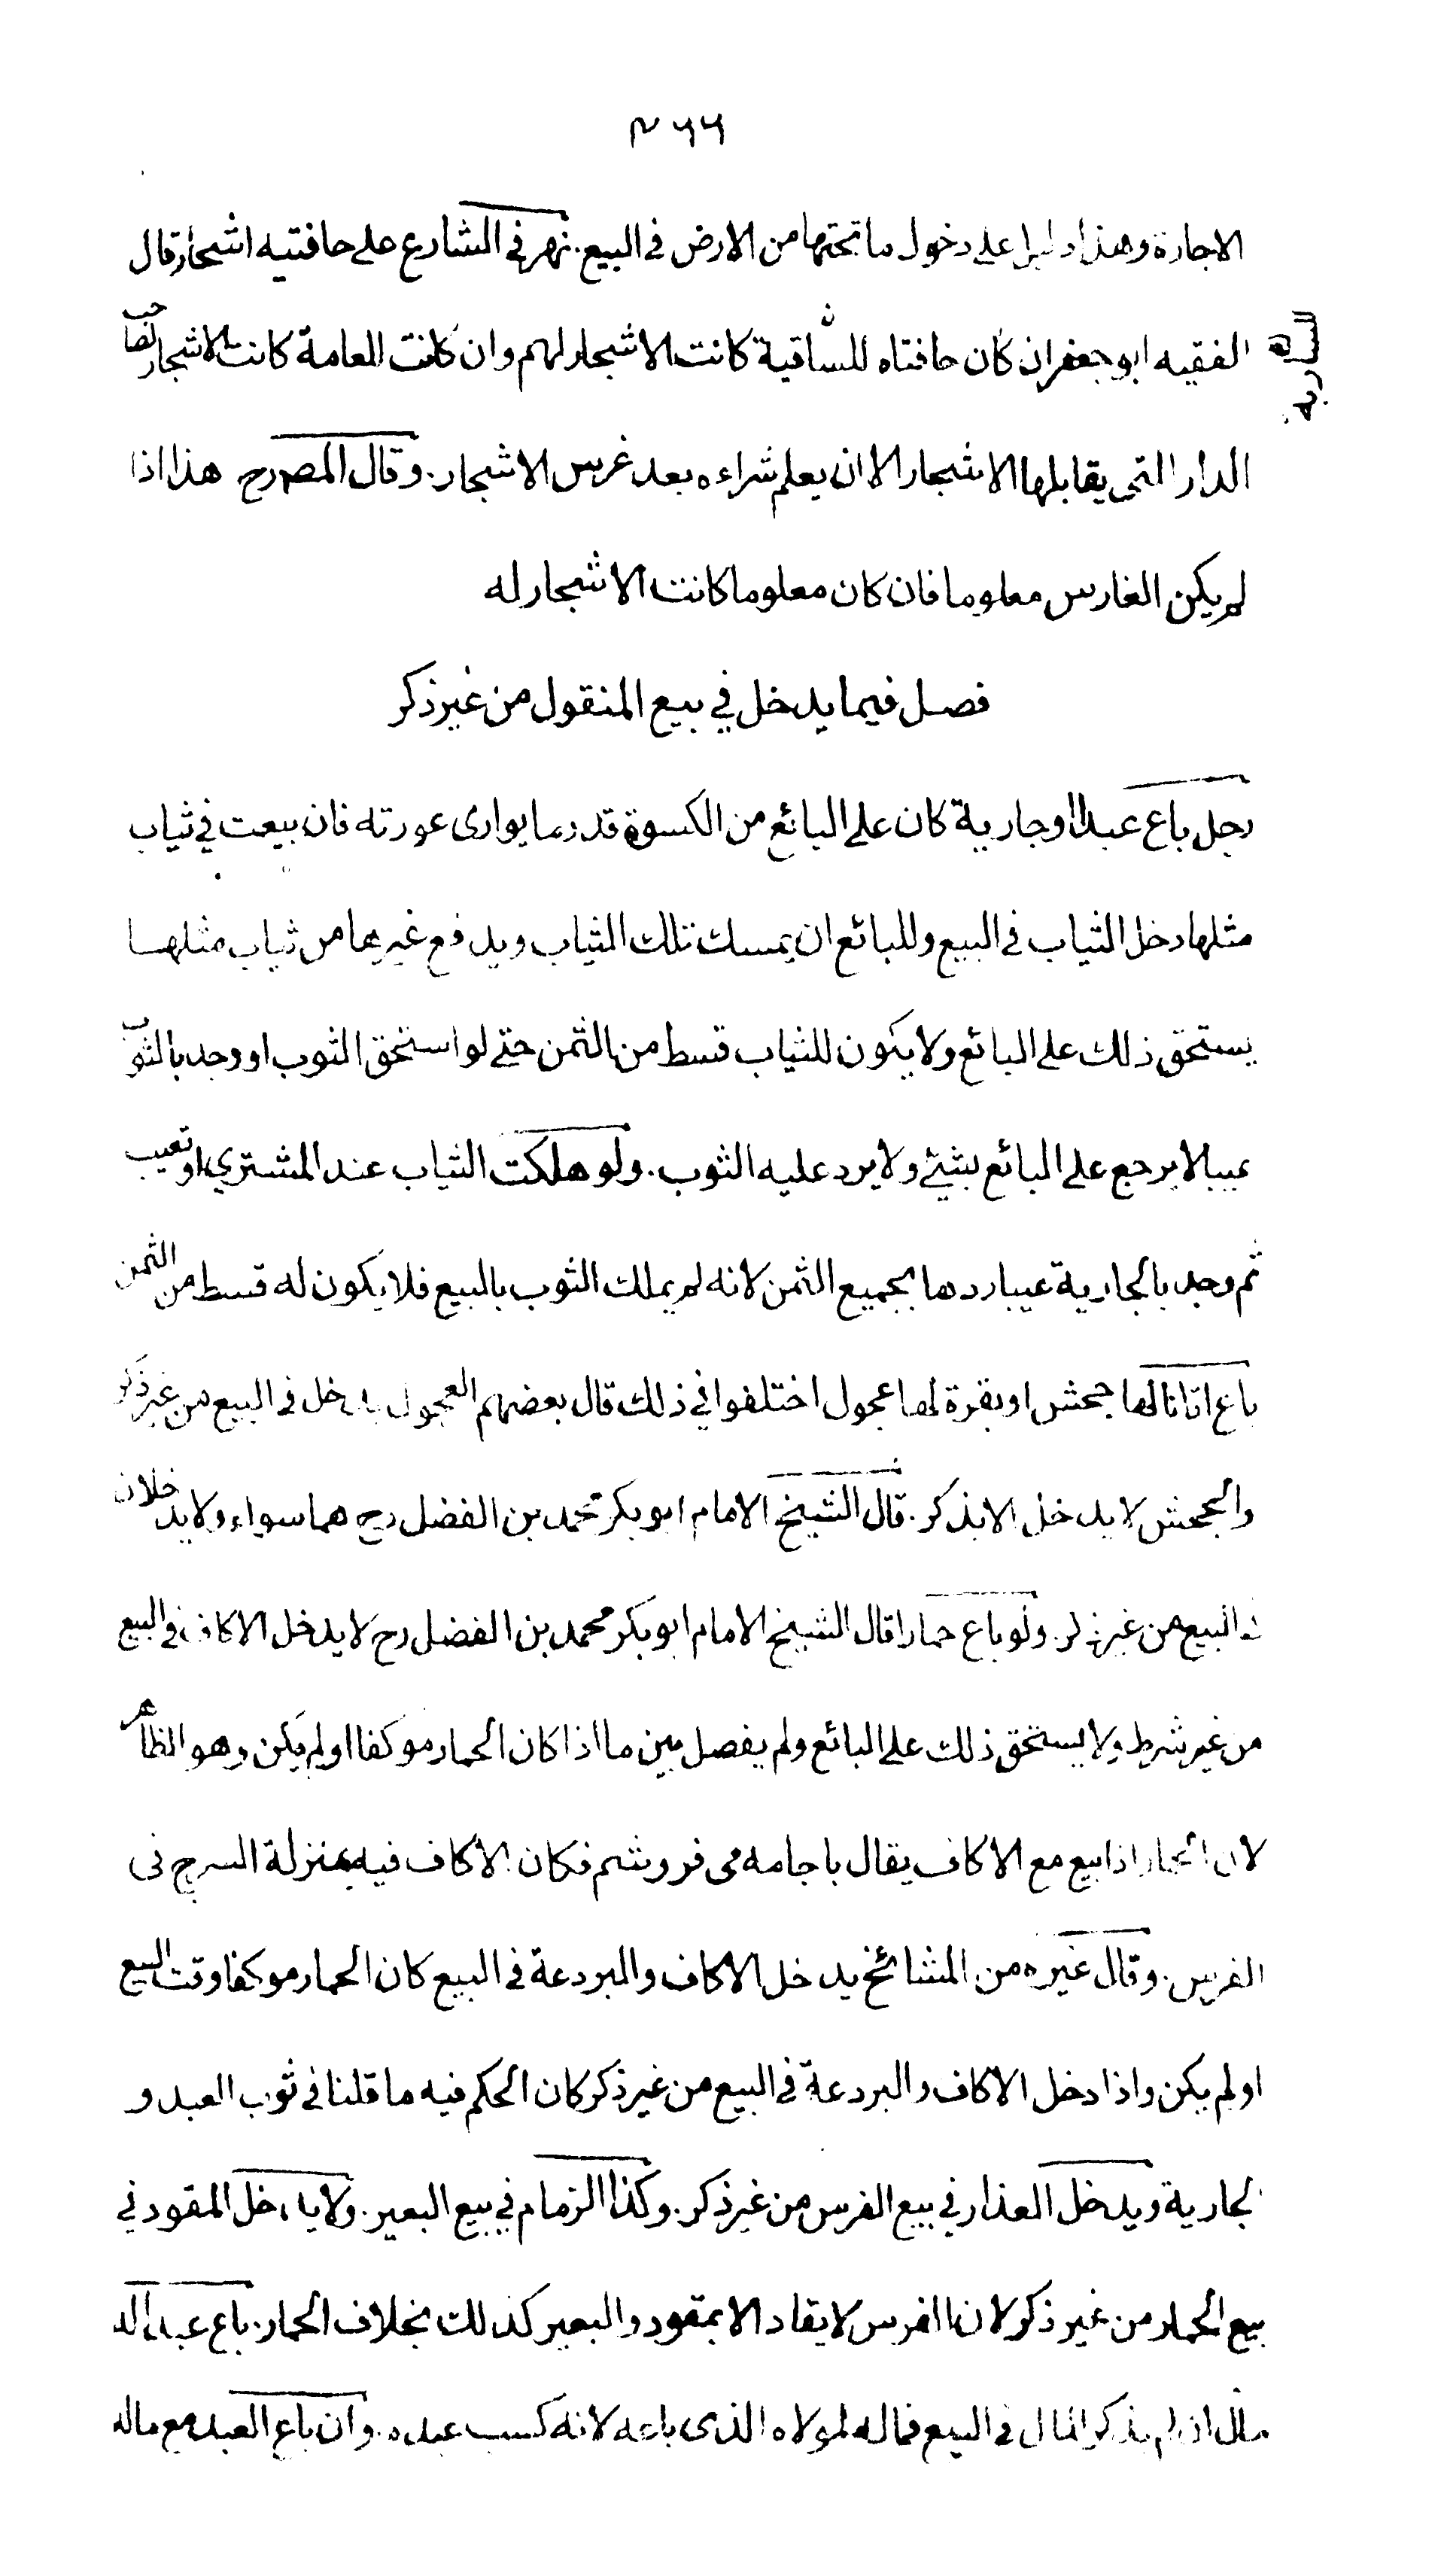 ٤٦٦
الاجارة وهذا دليل على دخول ما تحتها من الارض فى البيع. نهر فى الشارع على حافتيه اشجار قال
الفقيه ابو جعفر ان كان حافتاه للساقية كانت الاشجار لهم وان كانت للعامة كانت الاشجار لصاحب
الدار التى يقابلها الاشجار الا ان يعلم شراءه بعد غرس الاشجار. وقال المصرح هذا اذا
لم يكن الغارس معلوما فان كان معلوما كانت الاشجار له
فصل فيما يدخل في بيع المنقول من غير ذكر
رجل باع عبدا او جارية كان على البائع من الكسوة قدر ما يوارى عورته فان بيعت في ثياب
مثلها دخل الثياب فى البيع وللبائع ان يمسك تلك الثياب ويدفع غيرها من ثياب مثلها
يستحق ذلك على البائع ولا يكون للثياب قسط من الثمن حتى لو استحق الثوب او وجد بالثوب
عيبا لا يرجع على البائع بشئ ولا يرد عليه الثوب. ولو هلكت الثياب عند المشتري او تعيب
ثم وجد بالجارية عيبا ردها بجميع الثمن لانه لم يملك الثوب بالبيع فلا يكون له قسط من الثمن
باع اتانا لها جحش او بقرة لها عجول اختلفوا في ذلك قال بعضهم العجول يدخل فى البيع من غير ذكر
والجحش لا يدخل الا بذكر. قال الشيخ الامام ابو بكر محمد بن الفضل رح هما سواء ولا يدخلان
فى البيع من غير ذكر. ولو باع حمارا قال الشيخ الامام ابو بكر محمد بن الفضل رح لا يدخل الاكاف فى البيع
من غير شرط ولا يستحق ذلك على البائع ولم يفصل بين ما اذا كان الحمار موكفا او لم يكن وهو الظاهر
لان الحمار اذا بيع مع الاكاف يقال با جامه مى فروشم فكان الاكاف فيه بمنزلة السرج فى
الفرس. وقال غيره من المشائخ يدخل الاكاف والبردعة فى البيع كان الحمار موكفا وقت البيع
او لم يكن واذا دخل الاكاف والبردعة فى البيع من غير ذكر كان الحكم فيه ما قلنا فى ثوب العبد و
الجارية ويدخل العذار في بيع الفرس من غير ذكر. وكذا الزمام في بيع البعير. ولا يدخل المقود في
بيع الحمار من غير ذكر لان الفرس لا يقاد الا بمقود والبعير كذلك بخلاف الحمار. باع عبدا له
مال ان لم يذكر المال فى البيع فماله لمولاه الذى باعه لانه كسب عبده. وان باع العبد مع ماله